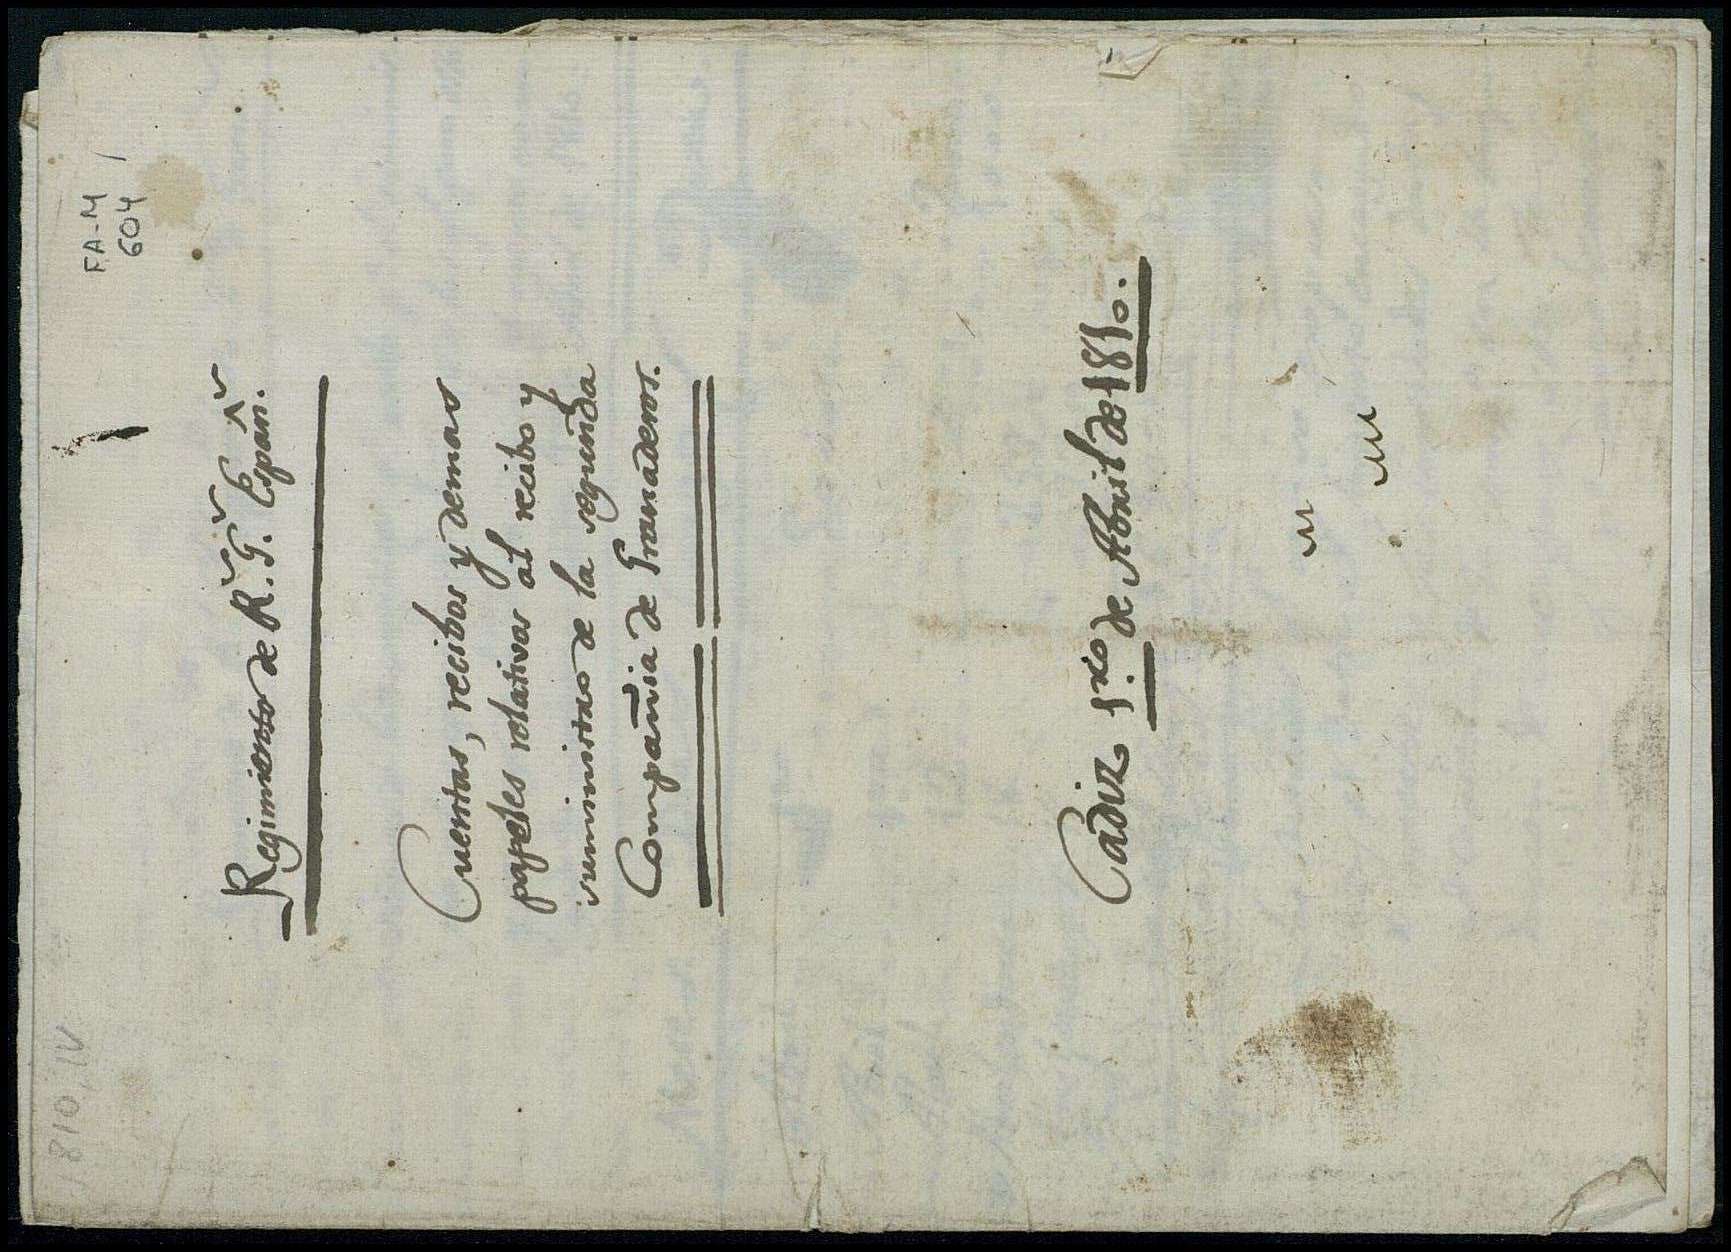 FA-M
604
1810, IV
Regimiento de R.^s G.^s Españ.^s
Cuentas, recibos y demas
papeles relativos al recibo y
suministro de la segunda
Compañia de Granaderos.
Cadiz 1.^ro de Abril de 1810.